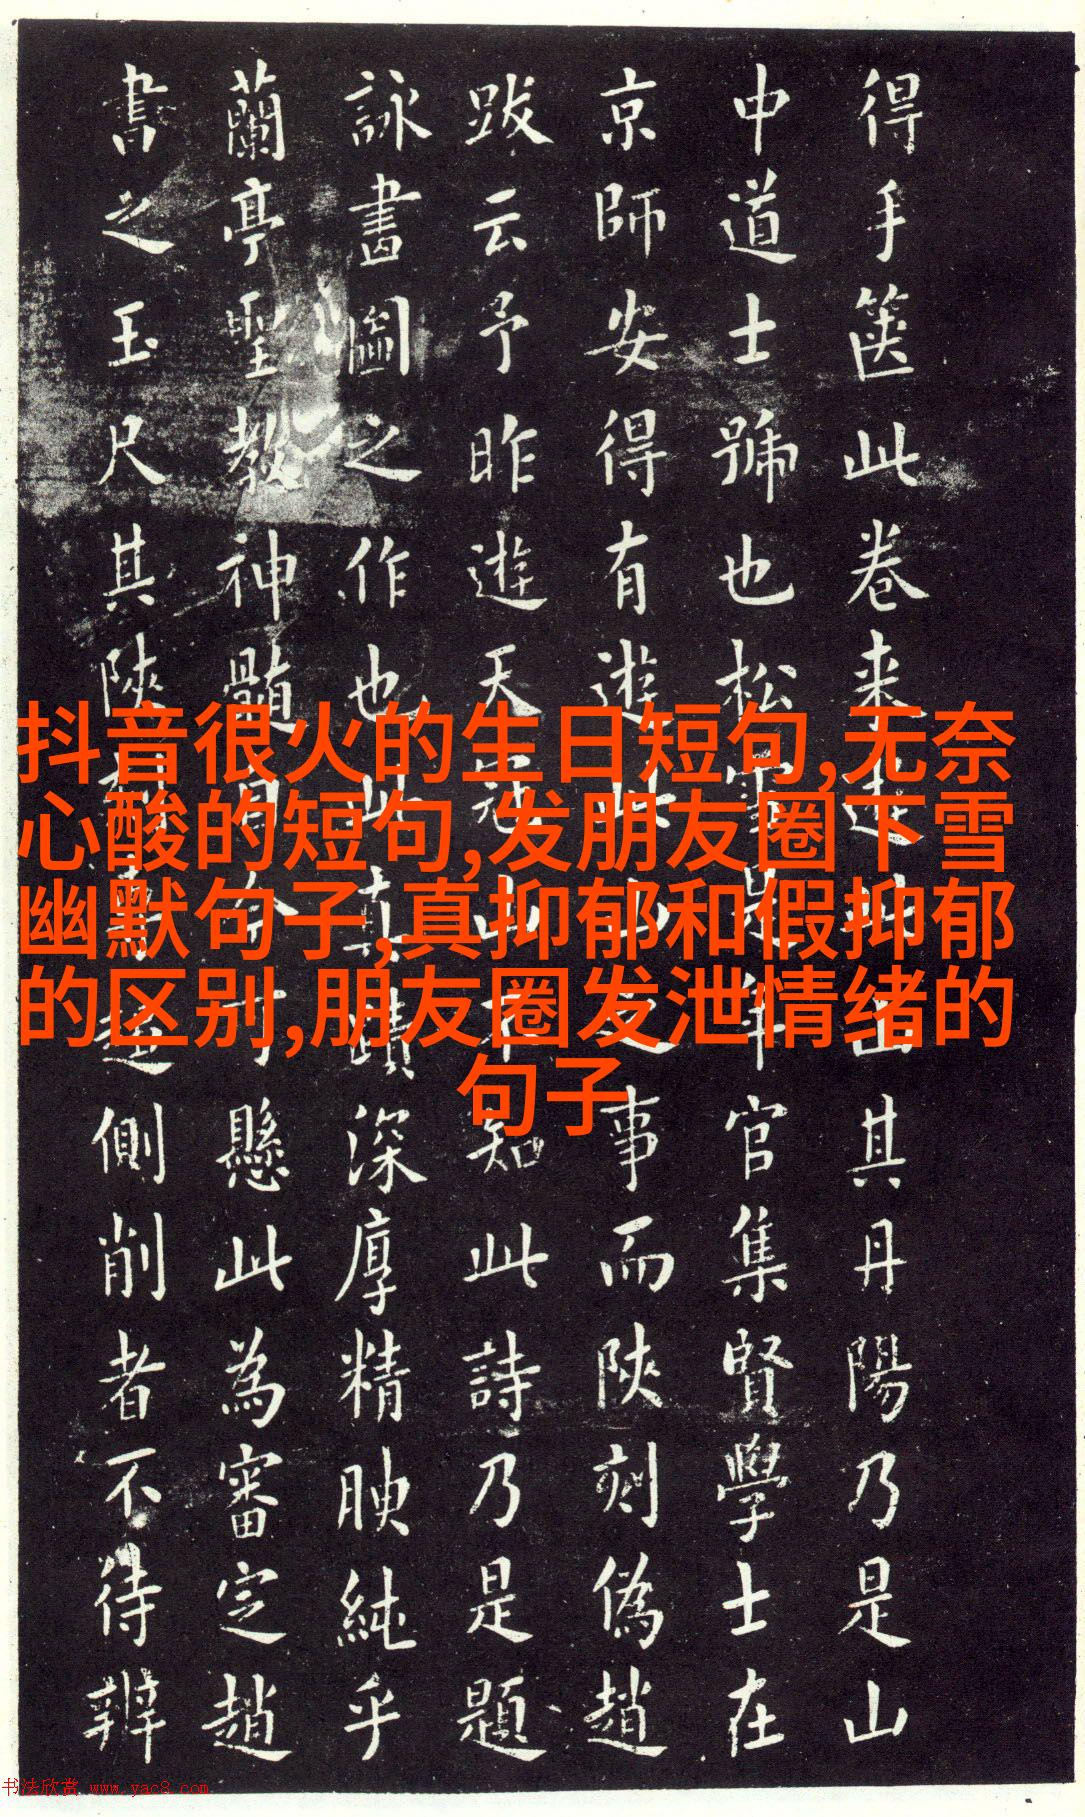 得手箧此卷来此山其丹陽乃是山
中道士號也松雪是年官集賢學士在
京師安得有遊此山之事而陕刻偽趙
跋云予昨遊天冠山不知此詩乃是題
詠畫圖之作也此真蹟深厚精腴純乎
蘭亭聖教神髓自今可懸此為審定趙
書之玉尺其陕側削者不待辨
抖音很火的生日短句,无奈
心酸的短句,发朋友圈下雪
幽默句子,真抑郁和假抑郁
的区别,朋友圈发泄情绪的
句子
书法欣赏 www.yac8.com